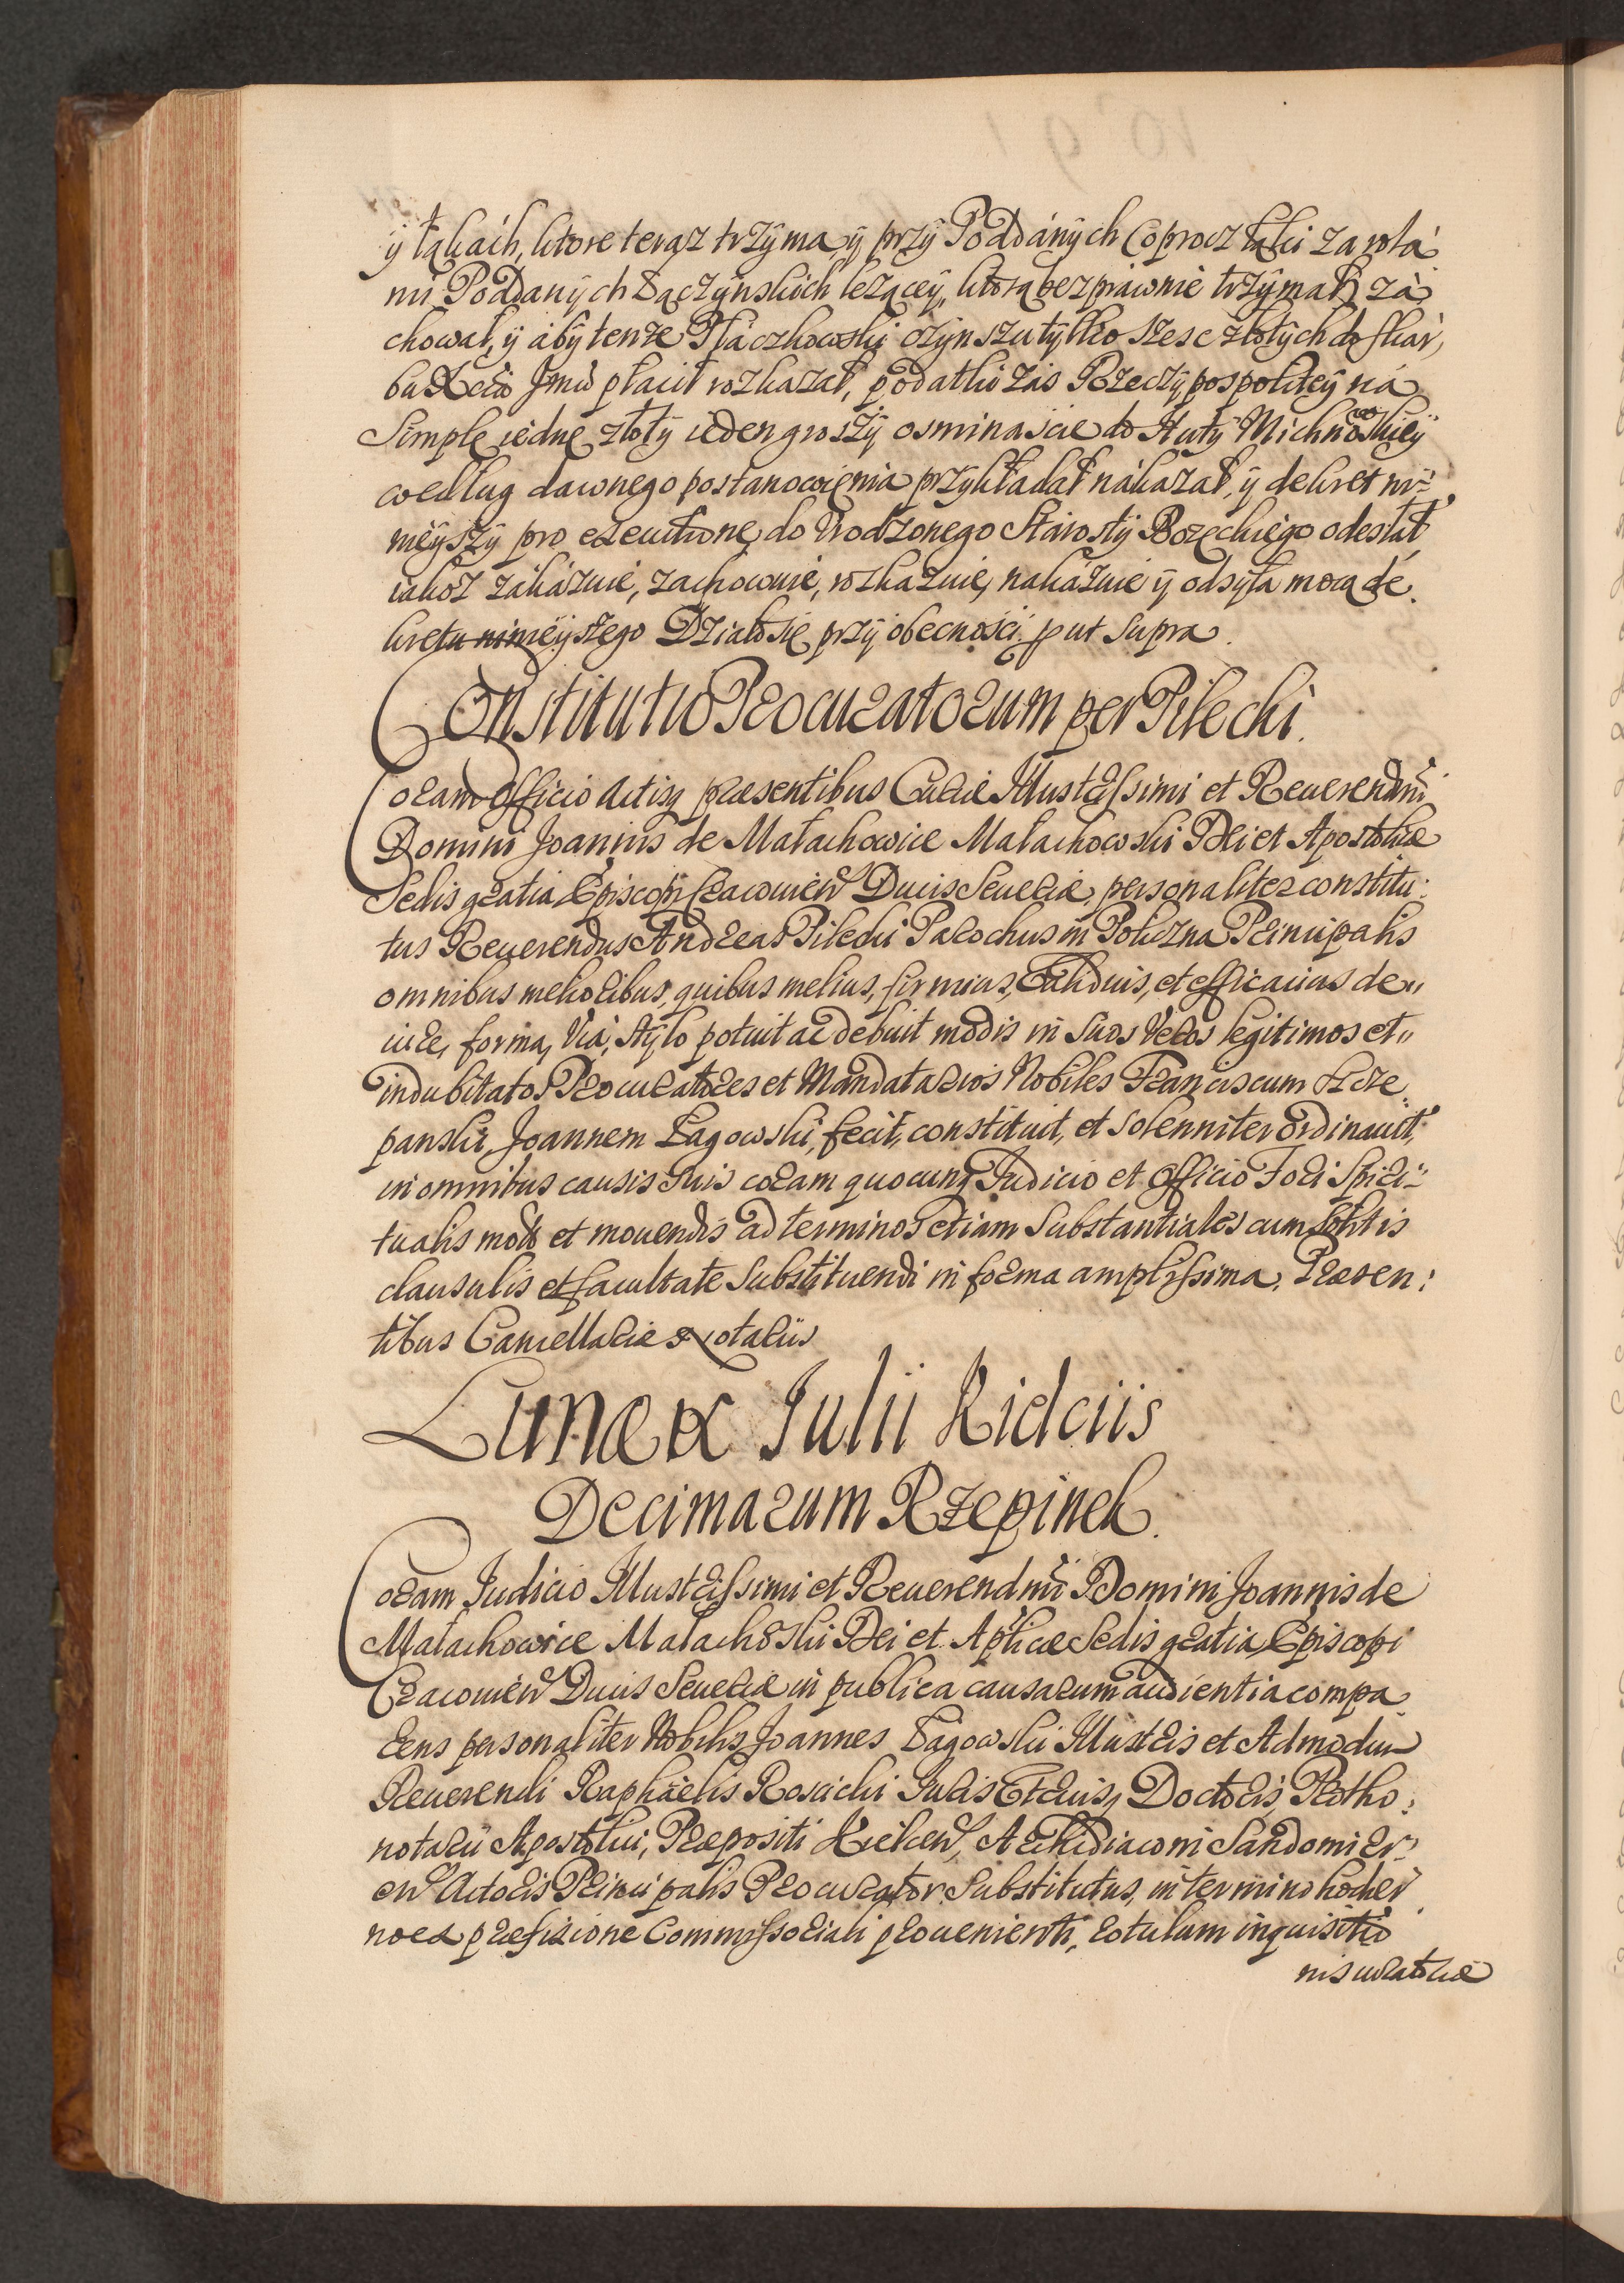 ÿ łąkach, ktore teraz trzÿma, ÿ przÿ Poddánÿch (oprocz łąki za rolá
mi Poddanÿch Łączÿnskich lezącey, ktorą bezprawnie trzÿmał) zá
chował, ÿ abÿ tenze Płaczkowski czÿnszu tÿlko szesc złotÿch do skar,
bu Xcio Jmci płacił rozkazał, podatku zas Rzeczÿpospolitey ná
Simplę iednę złotÿ ieden groszÿ osminascie do Hutÿ Michnowskieÿ
według dawnego postanowienia przÿkładał nákazał, ÿ dekret ni=
nieÿszÿ pro executione do Urodzonego Stárostÿ Bozęckiego odesłał,
iakoz zákázuie, zachowuie, rozkazuie, nakázuie ÿ odsÿła mocą de.
kretu ninieÿszego Działo się przÿ obecnosci ut supra.
Constitutio Procuratorum per Pilecki.
Coram Officio Actisq præsentibus Curiæ Illustrissimi et Reverendmi
Domini Joannis de Małachowice Małachowski Dei et Apostolicæ
Sedis gratia Episcopi Cracovien Ducis Severiæ, personaliter constitu:
tus Reverendus Andreas Pilecki Parochus in Policzna Principalis
omnibus melioribus, quibus melius, firmius, Validius, et efficacius de"
iure, forma, Via, stÿlo potuit ac debuit modis in suos Veros legitimos et"
indubitatos Procuratores et Mandatarios Nobiles Franciscum Szcze
panski, Joannem Łagowski, fecit, constituit, et solenniter ordinavit,
in omnibus causis suis coram quocunq Judicio et Officio Fori Spiri"
tualis motis et movendis ad terminos etiam Substantiales cum solitis
clausulis et facultate substituendi in forma amplissima. Præsen:
tibus Cancellariæ Notariis
Lunæ IX Julii Kielciis
Decimarum Rzepinek.
Coram Judicio Illustrissimi et Reverendmi Domini Joannis de
Małachowice Małachoski Dei et Aplicæ Sedis gratia Episcopi
Cracovien Ducis Severiæ in publica causarum audientia compa
rens personaliter Nobilis Joannes Łagowski Illustris et Admodum
Reverendi Raphaelis Rosicki Juris Utriusq Doctoris, Protho:
notarii Apostolici, Præpositi Kielcen, Archidiaconi Sandomier"
en Actoris Principalis Procurator Substitutus, in termino hodier
no ex præfixione Commissoriali provenienti, rotulum inquisitio
nis iuratoriæ